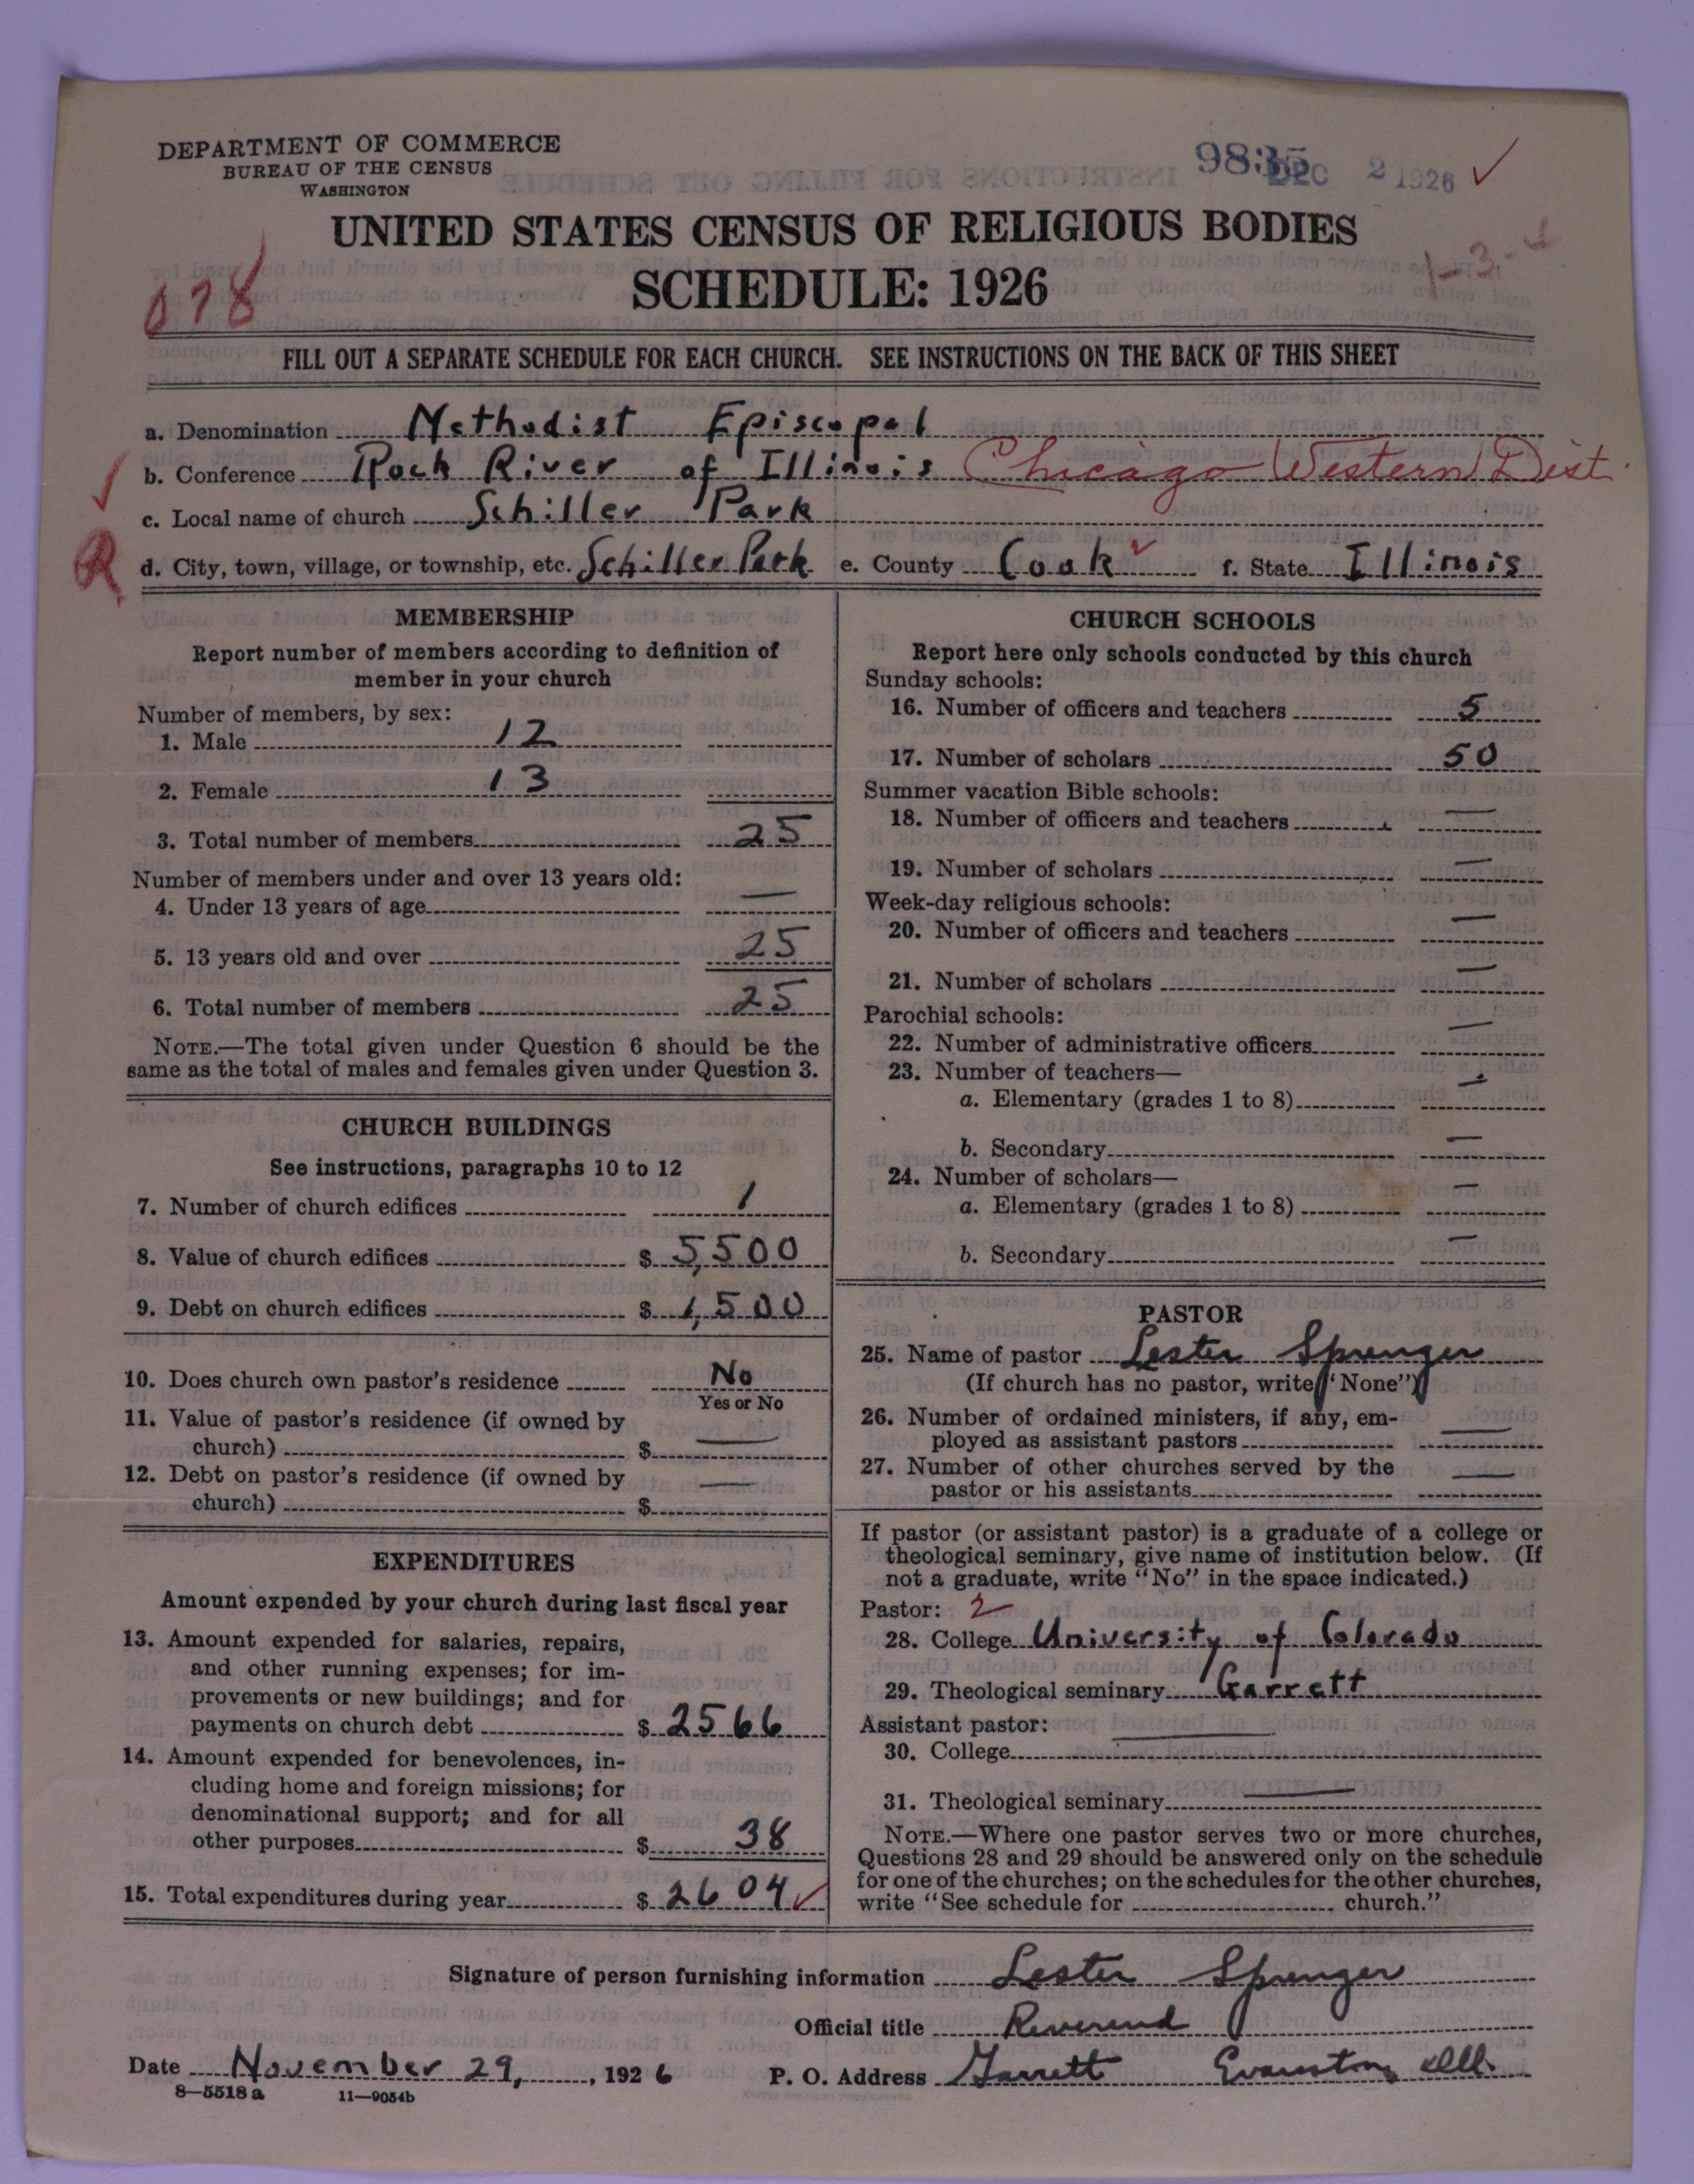 DEPARTMENT OF COMMERCE
BUREAU OF THE CENSUS
WASHINGTON
9835 DEC 2 1926
UNITED STATES CENSUS OF RELIGIOUS BODIES
SCHEDULE: 1926
078
FILL OUT A SEPARATE SCHEDULE FOR EACH CHURCH. SEE INSTRUCTIONS ON THE BACK OF THIS SHEET
a. Denomination Methodist Episcopal
b. Conference Rock River of Illinois Chicago Western Dist.
c. Local name of church Schiller Park
R
d. City, town, village, or township, etc. Schiller Park e. County Cook f. State Illinois
MEMBERSHIP
Report number of members according to definition of
member in your church
Number of members, by sex:
1. Male 12
2. Female 13
3. Total number of members 25
Number of members under and over 13 years old:
4. Under 13 years of age —
5. 13 years old and over 25
6. Total number of members 25
NOTE.—The total given under Question 6 should be the
same as the total of males and females given under Question 3.
CHURCH BUILDINGS
See instructions, paragraphs 10 to 12
7. Number of church edifices 1
8. Value of church edifices $ 5,500
9. Debt on church edifices $ 1,500
10. Does church own pastor's residence No
Yes or No
11. Value of pastor's residence (if owned by
church) $ —
12. Debt on pastor's residence (if owned by
church) $ —
EXPENDITURES
Amount expended by your church during last fiscal year
13. Amount expended for salaries, repairs,
and other running expenses; for im-
provements or new buildings; and for
payments on church debt $ 2566
14. Amount expended for benevolences, in-
cluding home and foreign missions; for
denominational support; and for all
other purposes $ 38
15. Total expenditures during year $ 2604
CHURCH SCHOOLS
Report here only schools conducted by this church
Sunday schools:
16. Number of officers and teachers 5
17. Number of scholars 50
Summer vacation Bible schools:
18. Number of officers and teachers —
19. Number of scholars —
Week-day religious schools:
20. Number of officers and teachers —
21. Number of scholars —
Parochial schools:
22. Number of administrative officers —
23. Number of teachers—
a. Elementary (grades 1 to 8) —
b. Secondary —
24. Number of scholars—
a. Elementary (grades 1 to 8) —
b. Secondary —
PASTOR
25. Name of pastor Lester Sprenger
(If church has no pastor, write "None")
26. Number of ordained ministers, if any, em-
ployed as assistant pastors —
27. Number of other churches served by the
pastor or his assistants —
If pastor (or assistant pastor) is a graduate of a college or
theological seminary, give name of institution below. (If
not a graduate, write "No" in the space indicated.)
Pastor: 2
28. College University of Colorado
29. Theological seminary Garrett
Assistant pastor:
30. College —
31. Theological seminary —
NOTE.—Where one pastor serves two or more churches,
Questions 28 and 29 should be answered only on the schedule
for one of the churches; on the schedules for the other churches,
write "See schedule for church."
Signature of person furnishing information Lester Sprenger
Official title Reverend
Date November 29, 1926 P. O. Address Garrett Evanston, Ill.
8—5518 a 11—9054b